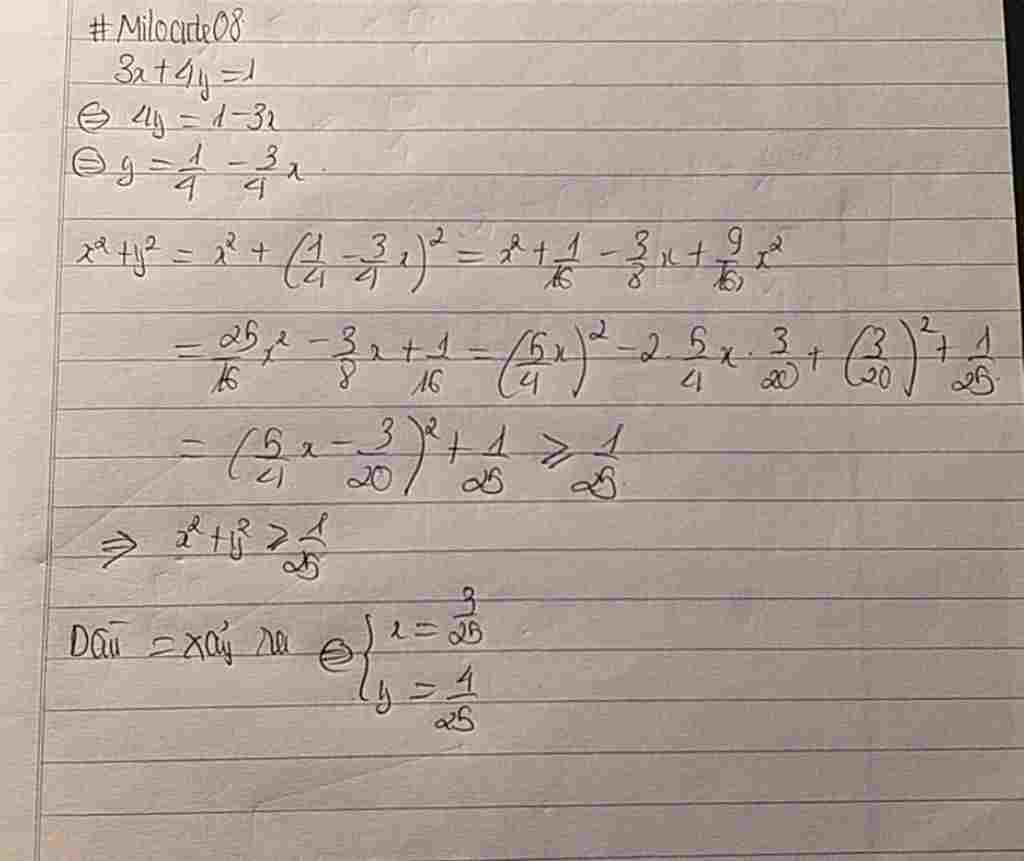 #Milocute08
3x+4y=1
⇔ 4y = 1-3x
⇔ y = 1/4 - 3/4 x.
x² + y² = x² + (1/4 - 3/4 x)² = x² + 1/16 - 3/8 x + 9/16 x²
= 25/16 x² - 3/8 x + 1/16 = (5/4 x)² - 2. 5/4 x. 3/20 + (3/20)² + 1/25.
= (5/4 x - 3/20)² + 1/25 ⩾ 1/25.
⇒ x² + y² ⩾ 1/25
Dấu = xảy ra ⇔ { x = 3/25
y = 4/25.